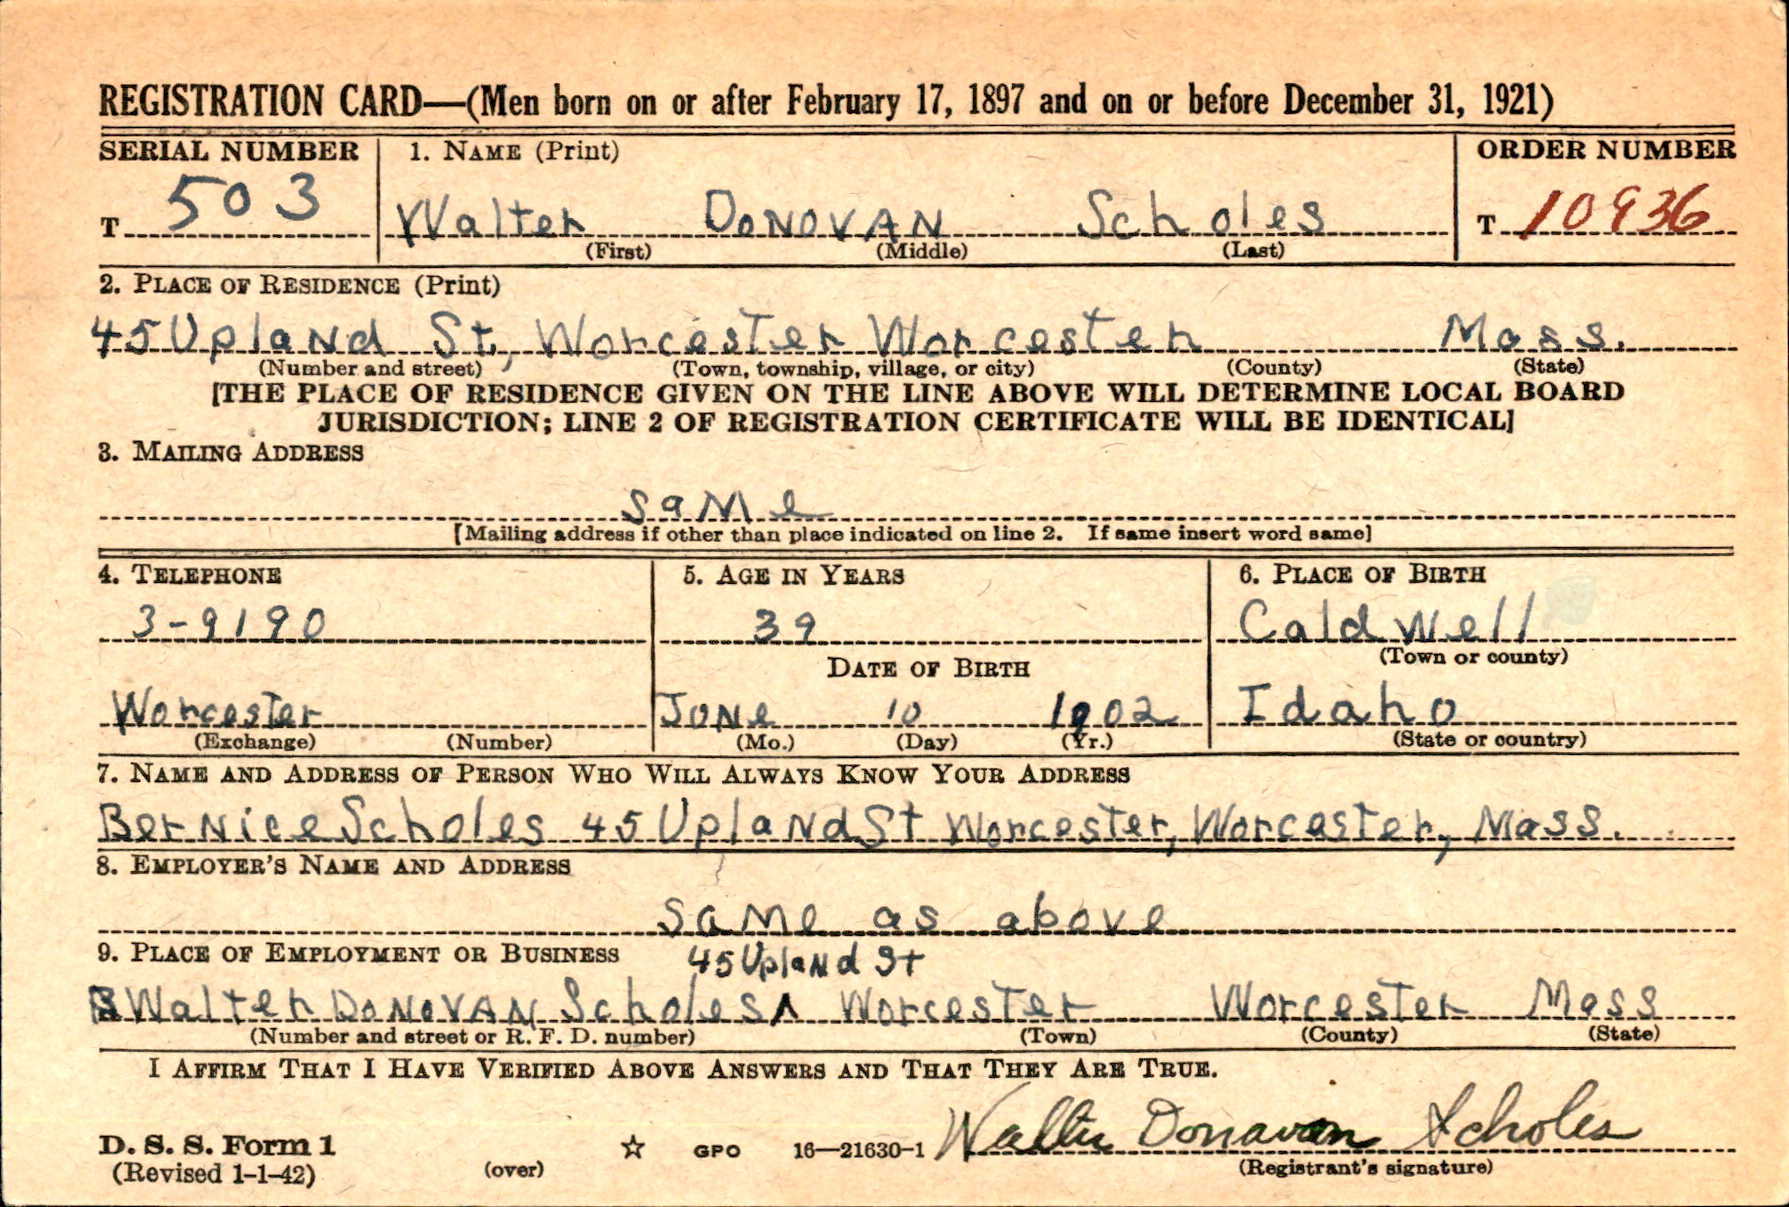 REGISTRATION CARD—(Men born on or after February 17, 1897 and on or before December 31, 1921)
SERIAL NUMBER 1. NAME (Print) ORDER NUMBER
T 503 Walter DONOVAN Scholes T 10936
(First) (Middle) (Last)
2. PLACE OF RESIDENCE (Print)
45 Upland St, Worcester Worcester Mass.
(Number and street) (Town, township, village, or city) (County) (State)
[THE PLACE OF RESIDENCE GIVEN ON THE LINE ABOVE WILL DETERMINE LOCAL BOARD
JURISDICTION; LINE 2 OF REGISTRATION CERTIFICATE WILL BE IDENTICAL]
3. MAILING ADDRESS
same
[Mailing address if other than place indicated on line 2. If same insert word same]
4. TELEPHONE 5. AGE IN YEARS 6. PLACE OF BIRTH
3-9190 39 Caldwell
(Town or county)
DATE OF BIRTH
Worcester June 10 1902 Idaho
(Exchange) (Number) (Mo.) (Day) (Yr.) (State or country)
7. NAME AND ADDRESS OF PERSON WHO WILL ALWAYS KNOW YOUR ADDRESS
Bernice Scholes 45 Upland St Worcester, Worcester, Mass.
8. EMPLOYER'S NAME AND ADDRESS
same as above
9. PLACE OF EMPLOYMENT OR BUSINESS 45 Upland St
Walter DONOVAN Scholes ∧ Worcester Worcester Mass
(Number and street or R. F. D. number) (Town) (County) (State)
I AFFIRM THAT I HAVE VERIFIED ABOVE ANSWERS AND THAT THEY ARE TRUE.
D. S. S. Form 1 ☆ GPO 16—21630-1 Walter Donavan Scholes
(Revised 1-1-42) (over) (Registrant's signature)